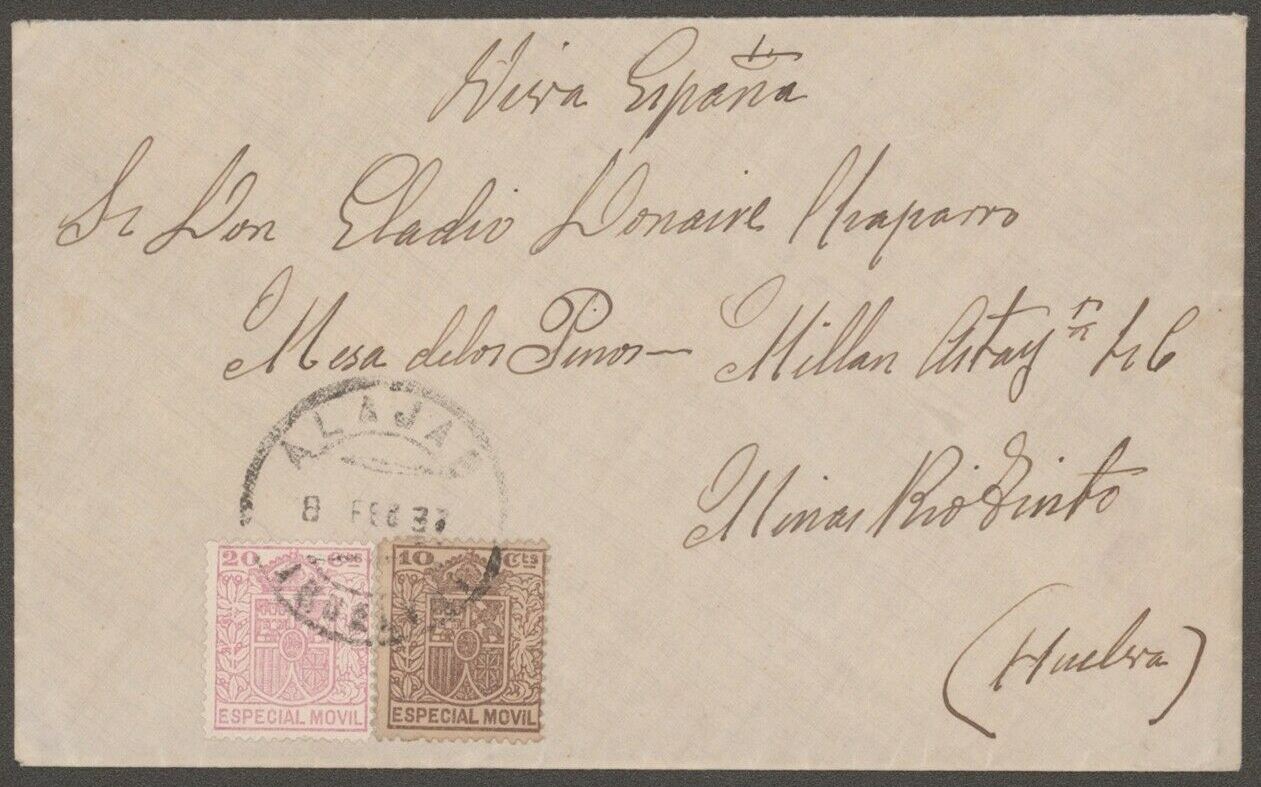 Viva España
Sr Don Eladio Donaire Chaparro
Mesa delos Pinos — Millan Astay n 6
Minas Rio Tinto
(Huelva)
ALAJA
8 FEB 37
20 Cts 10 Cts
ESPECIAL MOVIL ESPECIAL MOVIL